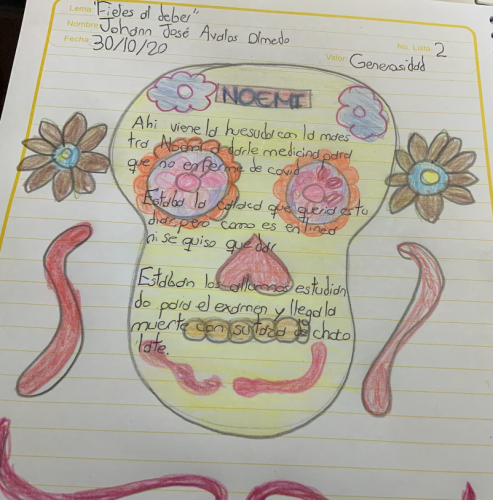 Lema: "Fieles al deber"
Nombre: Johann José Avalos Olmedo
No. Lista: 2
Fecha: 30/10/20
Valor: Generosidad
NOEMI
Ahi viene la huesuda con la maes
tra Noemi a darle medicina para
que no enferme de covid
Estaba la calaca que queria estu
diar pero como es en linea
ni se quiso quedar
Estaban los alumnos estudian
do para el examen y llega la
muerte con su taza de choco
late.